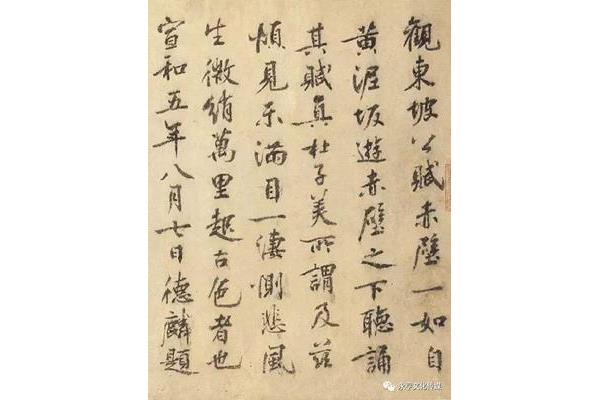 觀東坡公賦赤壁一如自
黄泥坂遊赤壁之下聽誦
其賦真杜子美所謂及茲
煩見示滿目一淒惻悲風
生微綃萬里起古色者也
宣和五年八月七日德麟題